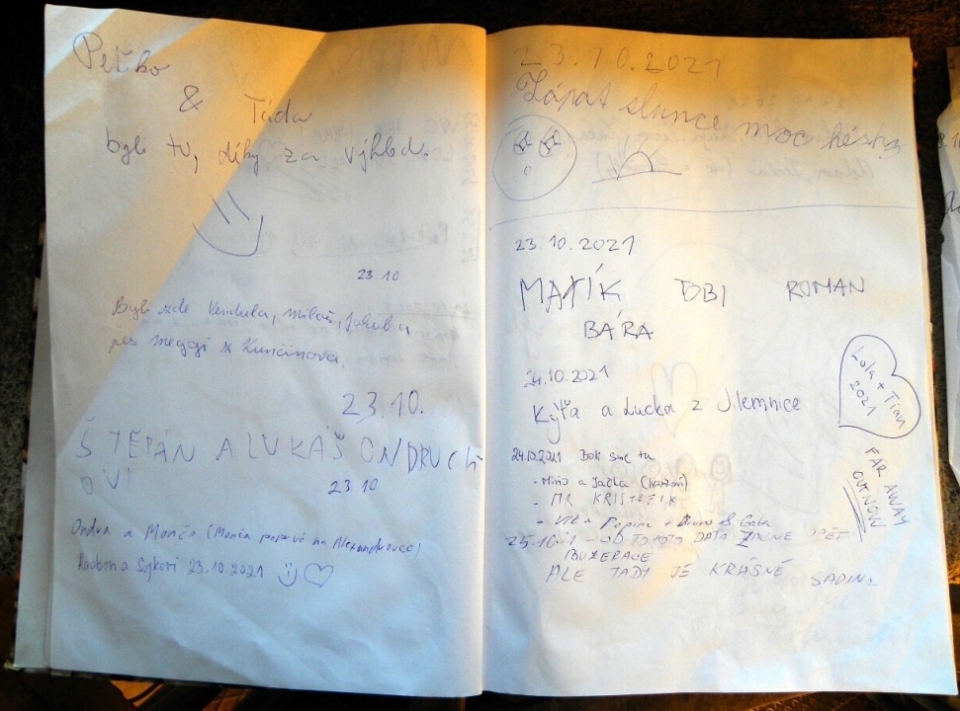 Peťko
& Táda
byli tu, díky za výhled.
23.10
Byli zde Vendula, Miloš, Jakub a
pes meggi z Kunčinova.
23.10.
ŠTEPÁN A LUKÁŠ ONDRUCHOVI
23.10
Ondra a Monča (Monča poprvé na Alexandrovce)
Radbon a Sýkori 23.10.2021
23.10.2021
Zápat slunce moc héskz
23.10.2021
MATÍK TOBI ROMAN
BÁRA
24.10.2021
Kýťa a Lucka z Jilemnice
Lola + Titan
2021
FAR AWAY
OUT NOW
24.10.2021 Boli sme tu
- Miňo a Jadka
- MR KRISTLEIK
- Vít a Popina +
25.10.21 - OD TOHOTO DATA ZAČNE OPĚT
BUZERACE
ALE TADY JE KRÁSNĚ